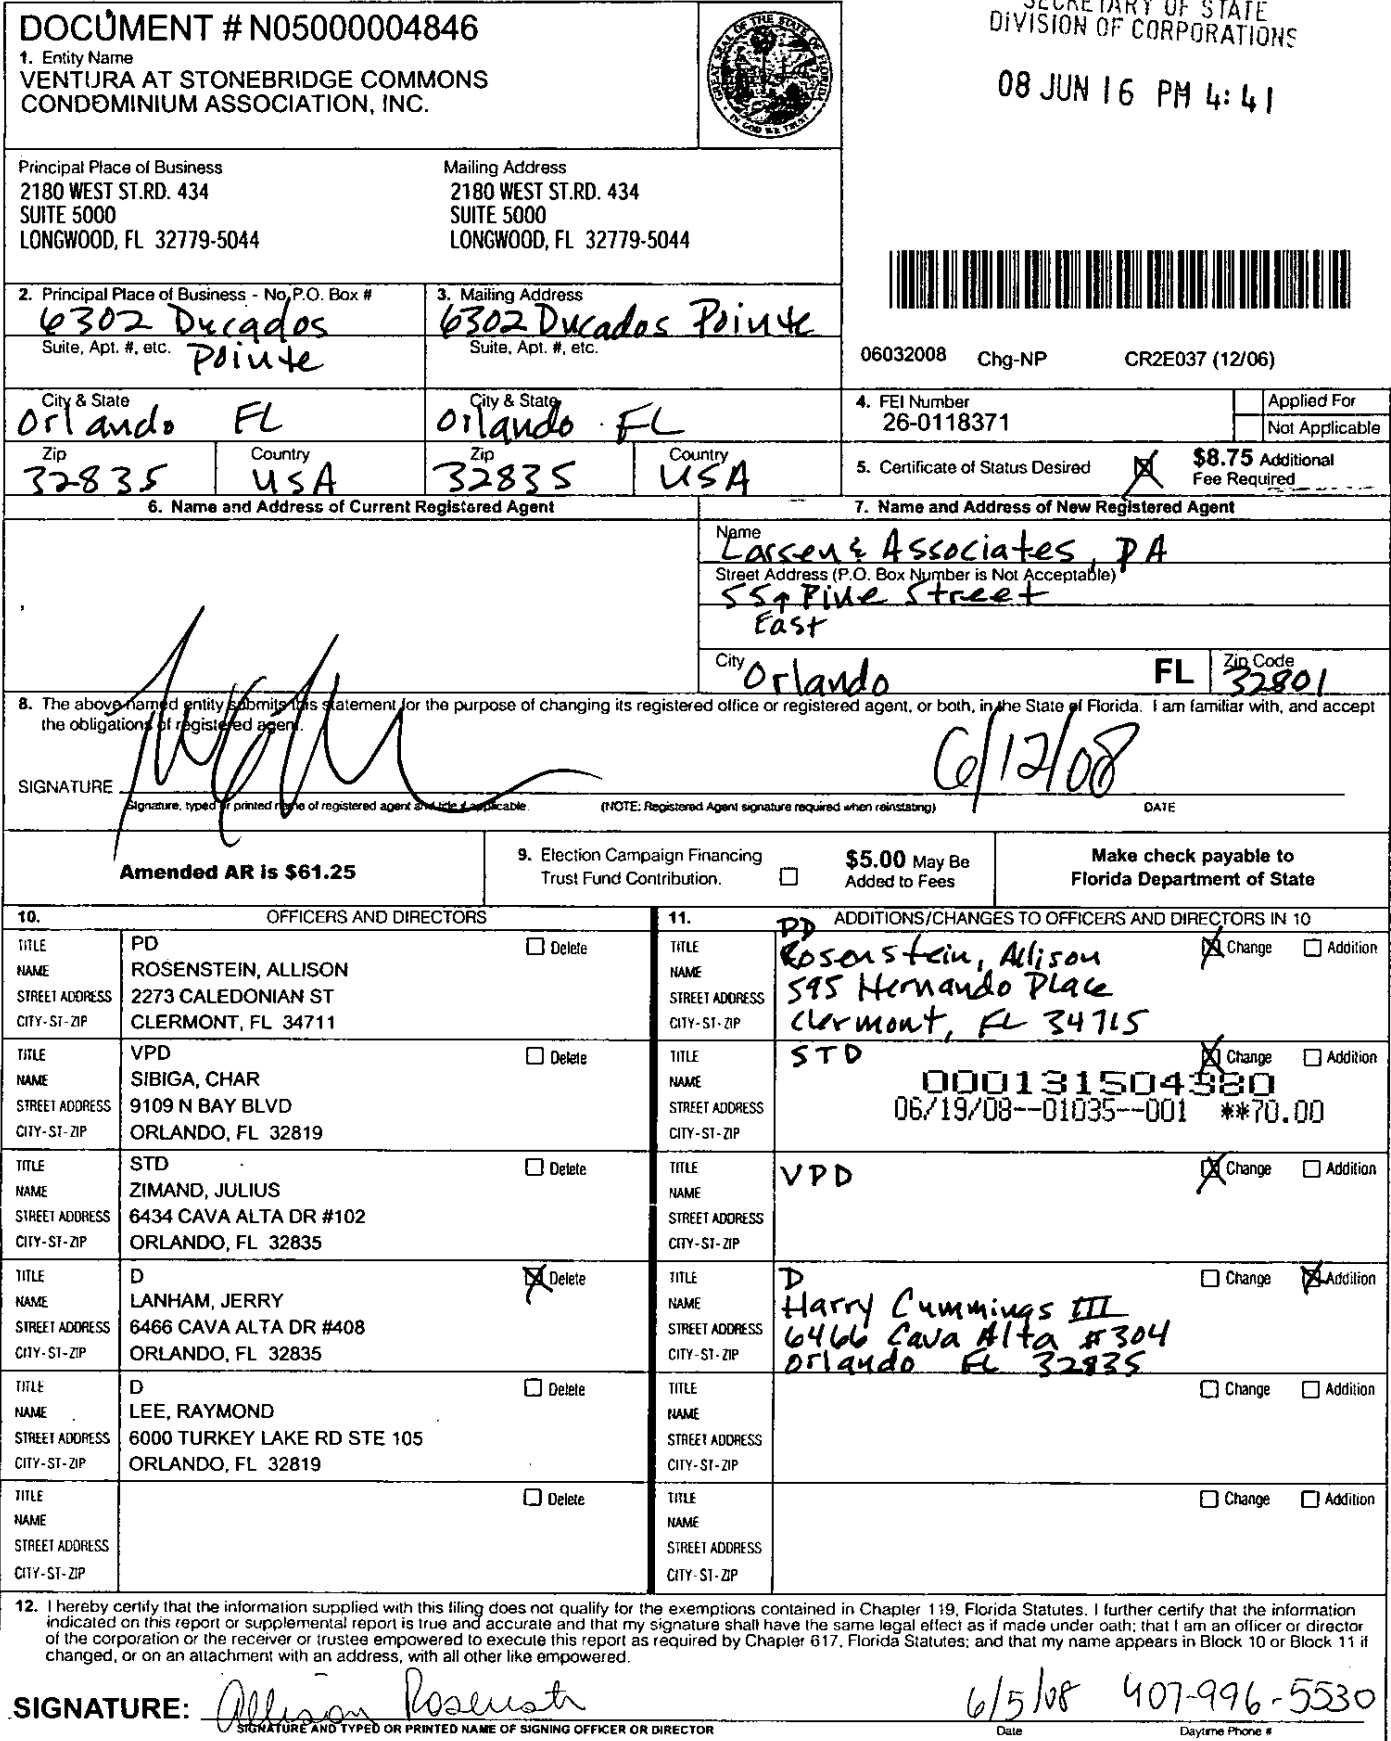 SECRETARY OF STATE
DIVISION OF CORPORATIONS
08 JUN 16 PM 4:41
DOCUMENT # N05000004846
1. Entity Name
VENTURA AT STONEBRIDGE COMMONS
CONDOMINIUM ASSOCIATION, INC.
GREAT SEAL OF THE STATE OF FLORIDA
IN GOD WE TRUST
Principal Place of Business
2180 WEST ST.RD. 434
SUITE 5000
LONGWOOD, FL 32779-5044
Mailing Address
2180 WEST ST.RD. 434
SUITE 5000
LONGWOOD, FL 32779-5044
2. Principal Place of Business - No P.O. Box #
6302 Ducados
Suite, Apt. #, etc.
Pointe
3. Mailing Address
6302 Ducados Pointe
Suite, Apt. #, etc.
06032008 Chg-NP CR2E037 (12/06)
City & State
Orlando FL
City & State
Orlando FL
Zip
32835
Country
USA
Zip
32835
Country
USA
4. FEI Number
26-0118371
Applied For
Not Applicable
5. Certificate of Status Desired
$8.75 Additional
Fee Required
6. Name and Address of Current Registered Agent
7. Name and Address of New Registered Agent
Name
Larsen & Associates, PA
Street Address (P.O. Box Number is Not Acceptable)
Pine Street
East
City
Orlando
FL
Zip Code
32801
8. The above named entity submits this statement for the purpose of changing its registered office or registered agent, or both, in the State of Florida. I am familiar with, and accept
the obligations of registered agent.
SIGNATURE
6/12/08
Signature, typed or printed name of registered agent and title if applicable.
(NOTE: Registered Agent signature required when reinstating)
DATE
Amended AR is $61.25
9. Election Campaign Financing
Trust Fund Contribution.
$5.00 May Be
Added to Fees
Make check payable to
Florida Department of State
10. OFFICERS AND DIRECTORS
TITLE PD Delete
NAME ROSENSTEIN, ALLISON
STREET ADDRESS 2273 CALEDONIAN ST
CITY-ST-ZIP CLERMONT, FL 34711
TITLE VPD Delete
NAME SIBIGA, CHAR
STREET ADDRESS 9109 N BAY BLVD
CITY-ST-ZIP ORLANDO, FL 32819
TITLE STD Delete
NAME ZIMAND, JULIUS
STREET ADDRESS 6434 CAVA ALTA DR #102
CITY-ST-ZIP ORLANDO, FL 32835
TITLE D Delete
NAME LANHAM, JERRY
STREET ADDRESS 6466 CAVA ALTA DR #408
CITY-ST-ZIP ORLANDO, FL 32835
TITLE D Delete
NAME LEE, RAYMOND
STREET ADDRESS 6000 TURKEY LAKE RD STE 105
CITY-ST-ZIP ORLANDO, FL 32819
TITLE Delete
NAME
STREET ADDRESS
CITY-ST-ZIP
11. ADDITIONS/CHANGES TO OFFICERS AND DIRECTORS IN 10
TITLE PD Change Addition
NAME Rosenstein, Allison
STREET ADDRESS 595 Hernando Place
CITY-ST-ZIP Clermont, FL 34715
TITLE STD Change Addition
NAME 000131504380
STREET ADDRESS 06/19/08--01035--001 **70.00
CITY-ST-ZIP
TITLE VPD Change Addition
NAME
STREET ADDRESS
CITY-ST-ZIP
TITLE D Change Addition
NAME Harry Cummings III
STREET ADDRESS 6466 Cava Alta #304
CITY-ST-ZIP Orlando FL 32835
TITLE Change Addition
NAME
STREET ADDRESS
CITY-ST-ZIP
TITLE Change Addition
NAME
STREET ADDRESS
CITY-ST-ZIP
12. I hereby certify that the information supplied with this filing does not qualify for the exemptions contained in Chapter 119, Florida Statutes. I further certify that the information
indicated on this report or supplemental report is true and accurate and that my signature shall have the same legal effect as if made under oath; that I am an officer or director
of the corporation or the receiver or trustee empowered to execute this report as required by Chapter 617, Florida Statutes; and that my name appears in Block 10 or Block 11 if
changed, or on an attachment with an address, with all other like empowered.
SIGNATURE: Allison Rosenstein 6/5/08 407-996-5530
SIGNATURE AND TYPED OR PRINTED NAME OF SIGNING OFFICER OR DIRECTOR
Date
Daytime Phone #